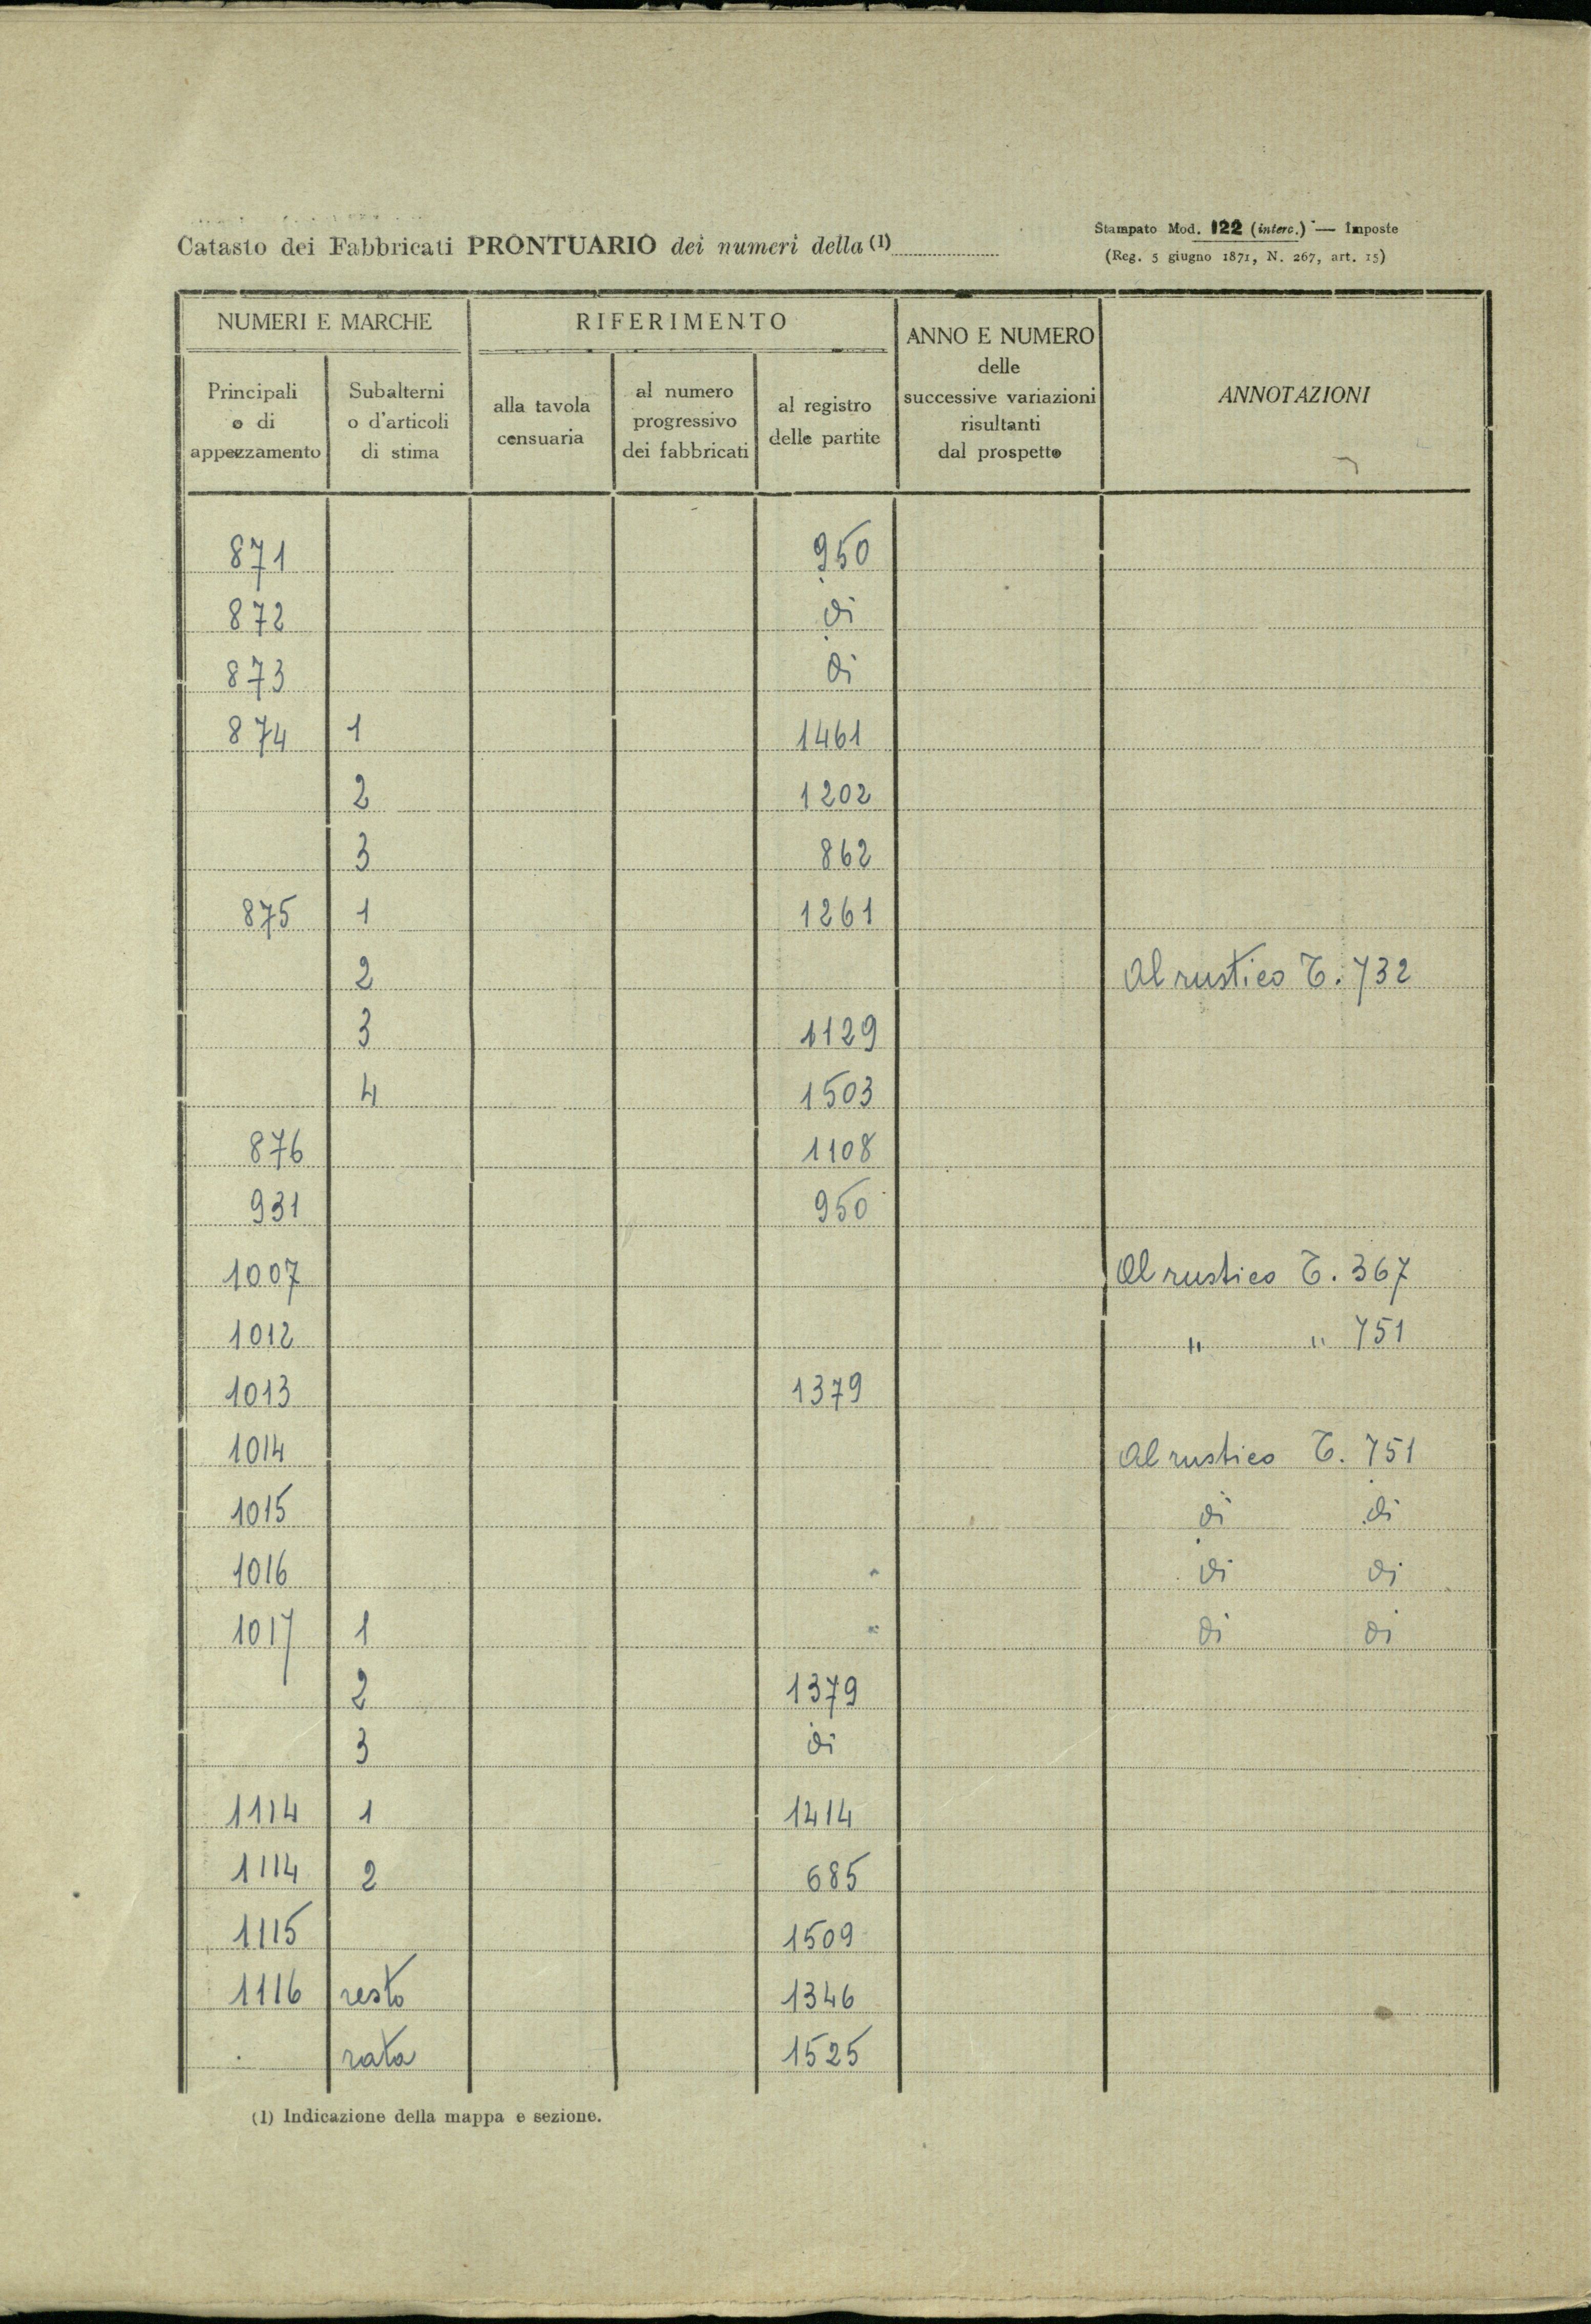 Catasto dei Fabbricati PRONTUARIO dei numeri della (1)
Stampato Mod. 122 (interc.) — Imposte
(Reg. 5 giugno 1871, N. 267, art. 15)
NUMERI E MARCHE
RIFERIMENTO
ANNO E NUMERO
delle
successive variazioni
risultanti
dal prospetto
ANNOTAZIONI
Principali
o di
appezzamento
Subalterni
o d'articoli
di stima
alla tavola
censuaria
al numero
progressivo
dei fabbricati
al registro
delle partite
871 950
872 di
873 di
874 1 1461
2 1202
3 862
875 1 1261
2 Al rustico T. 732
3 1129
4 1503
876 1108
931 950
1007 Al rustico T. 367
1012 " " 751
1013 1379
1014 Al rustico T. 751
1015 di di
1016 di di
1017 1 di di
2 1379
3 di
1114 1 1414
1114 2 685
1115 1509
1116 resto 1346
rata 1525
(1) Indicazione della mappa e sezione.